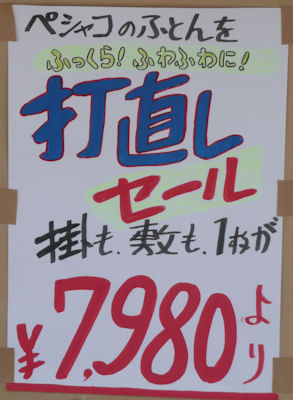 ペシャコのふとんを
ふっくら!ふわふわに!
打直し
セール
掛も、敷も、1枚が
¥7,980より